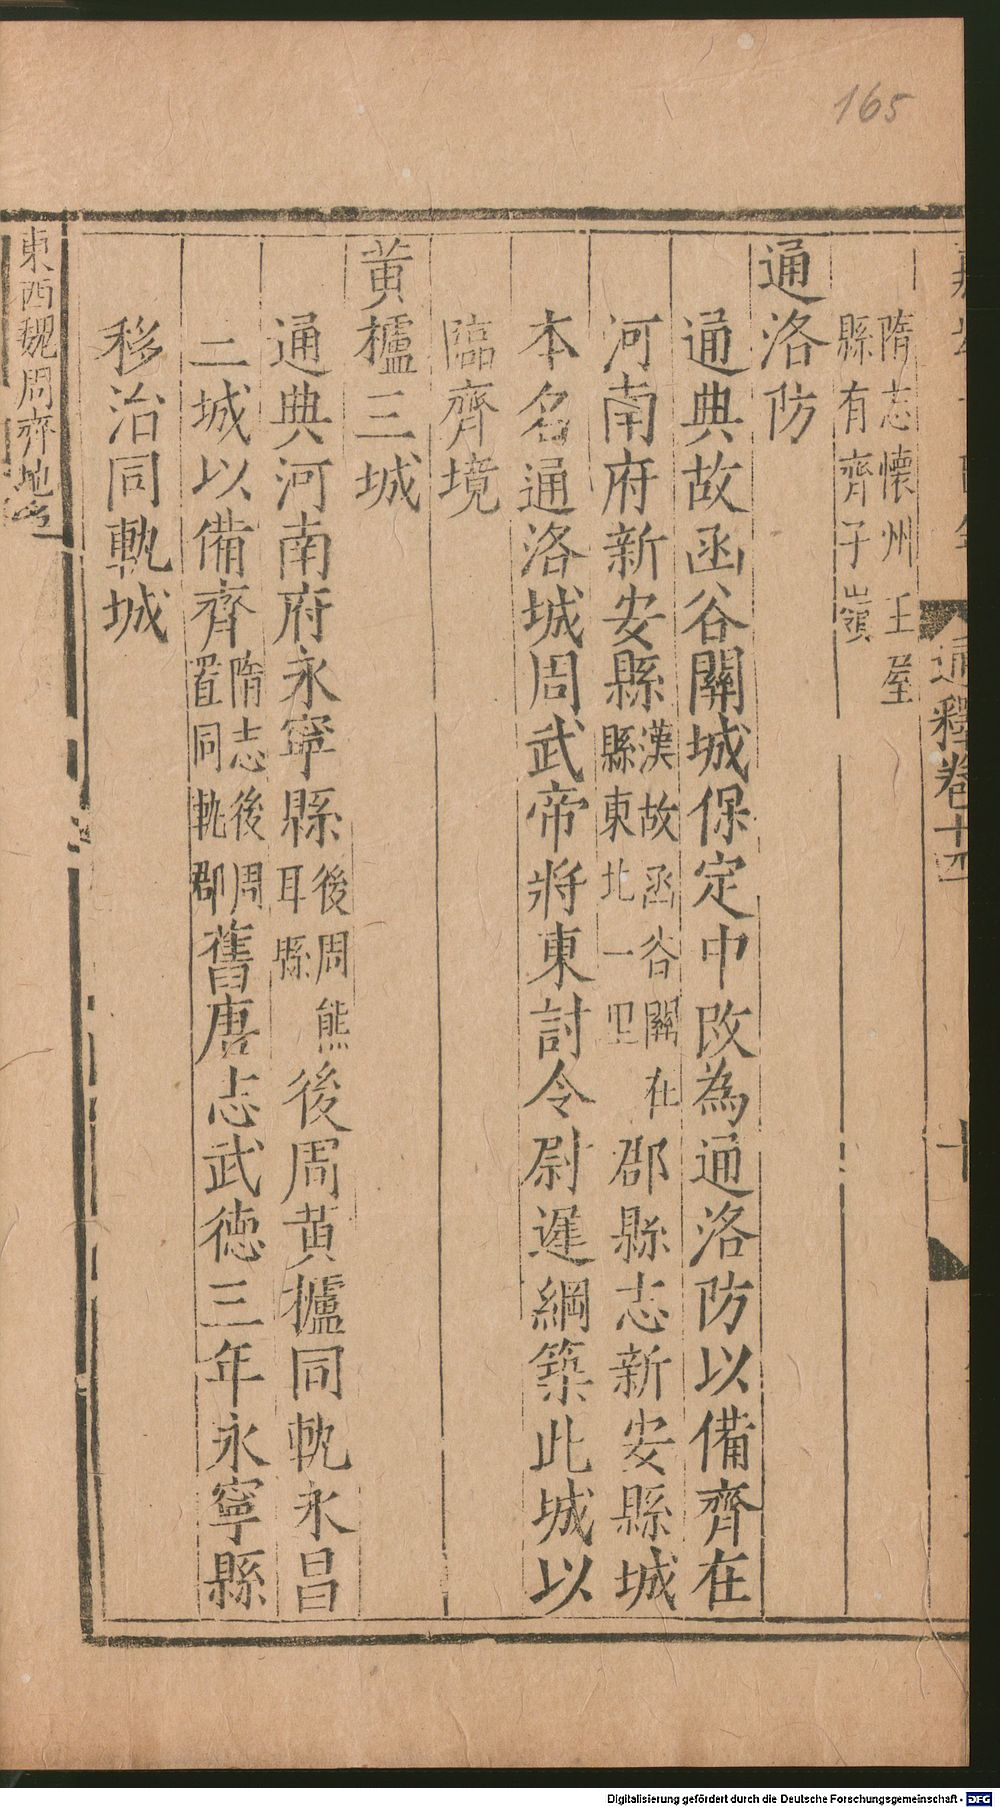 165
通釋卷十四
十
隋志懷州王屋
縣有齊子嶺
通洛防
通典故函谷關城保定中改為通洛防以備齊在
河南府新安縣漢故函谷關在縣東北一里郡縣志新安縣城
本名通洛城周武帝將東討令尉遲綱築此城以
臨齊境
黃櫨三城
通典河南府永寧縣後周熊耳縣後周黃櫨同軌永昌
二城以備齊隋志後周置同軌郡舊唐志武德三年永寧縣
移治同軌城
東西魏周齊地
Digitalisierung gefördert durch die Deutsche Forschungsgemeinschaft - DFG